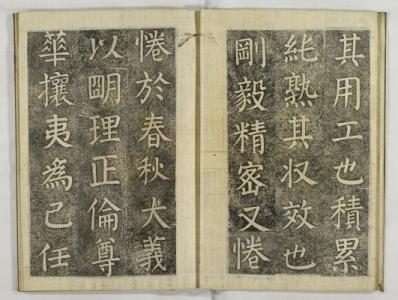 其用工也積累
純熟其収效也
剛毅精宻又惓
惓於春秋大義
以明理正倫尊
華攘夷爲己任